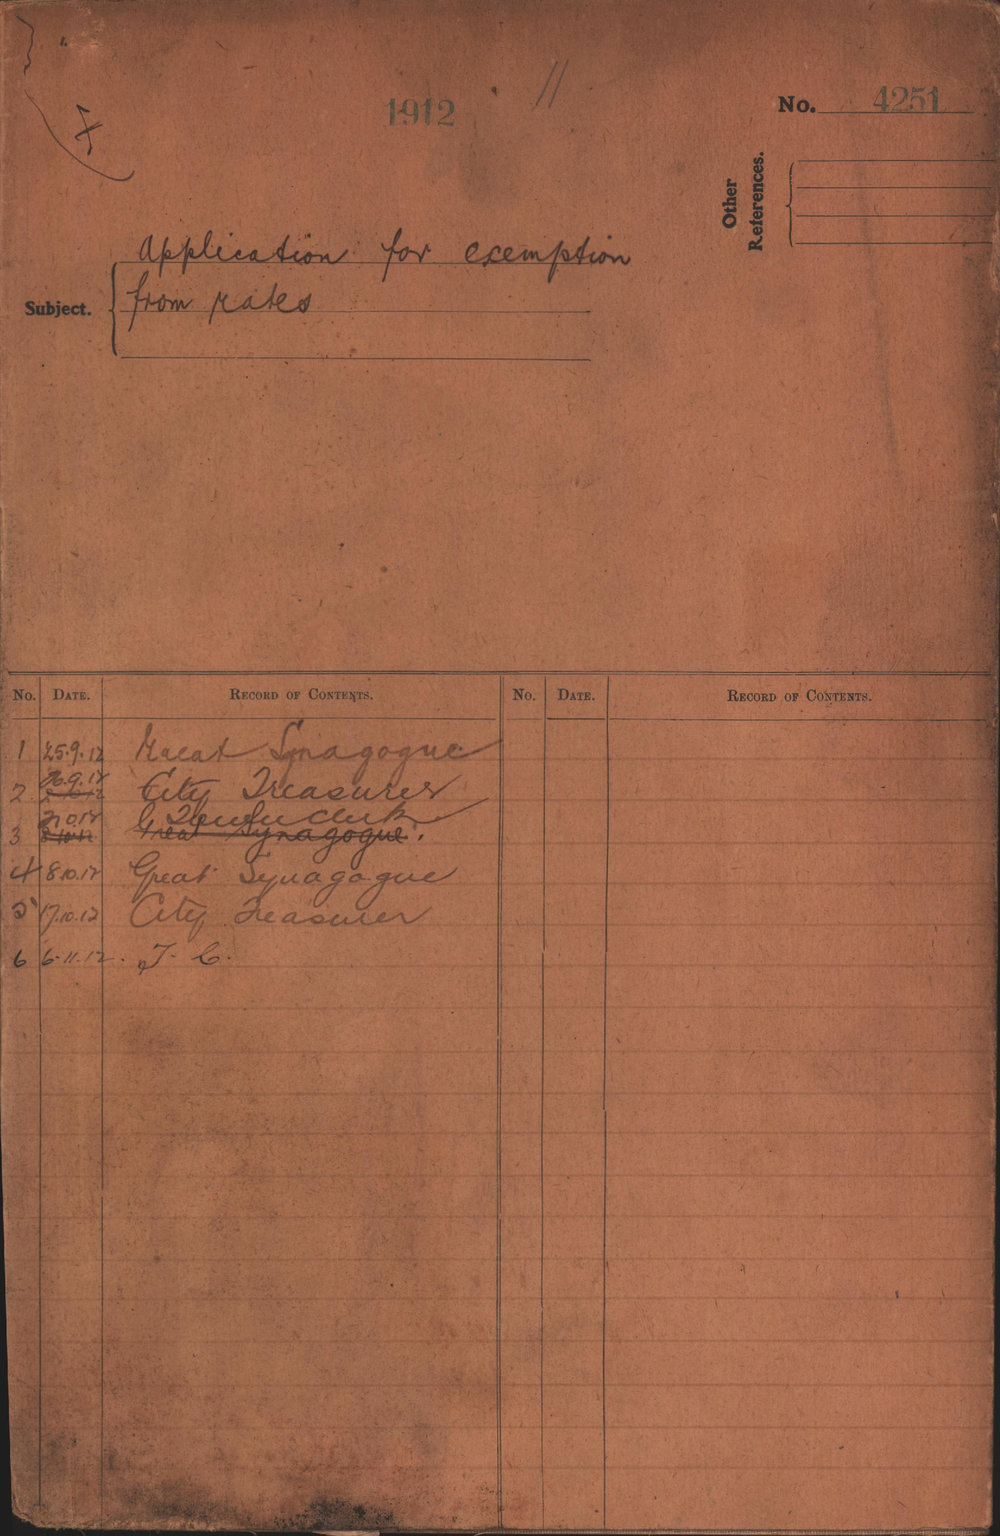 1912
No. 4251
Other
References.
Subject.
Application for exemption
from rates
No. DATE. RECORD OF CONTENTS. No. DATE. RECORD OF CONTENTS.
1 25.9.12 Great Synagogue
26.9.12
2 City Treasurer
Clerk
3 Great Synagogue.
4 8.10.12 Great Synagogue
5 17.10.12 City Treasurer
6 6.11.12. T. C.